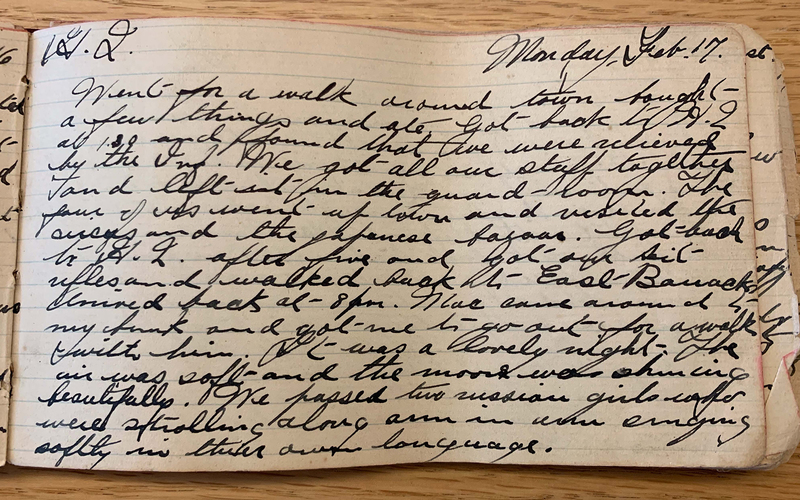 H.Q. Monday, Feb. 17.
Went for a walk around town bought
a few things and ate. Got back to H.Q
at 1.30 and found that we were relieved
by the Inf. We got all our stuff together
and left it in the guard-room. The
four of us went up town and visited the
and the japanese bazaar. Got back
to H.Q. after five and got our kit
rifles and walked back to East Barracks
Arrived back at 8pm. Mac came around to
my bunk and got me to go out for a walk
with him. It was a lovely night. The
air was soft and the moon was shining
beautifully. We passed two russian girls who
were strolling along arm in arm singing
softly in their own language.